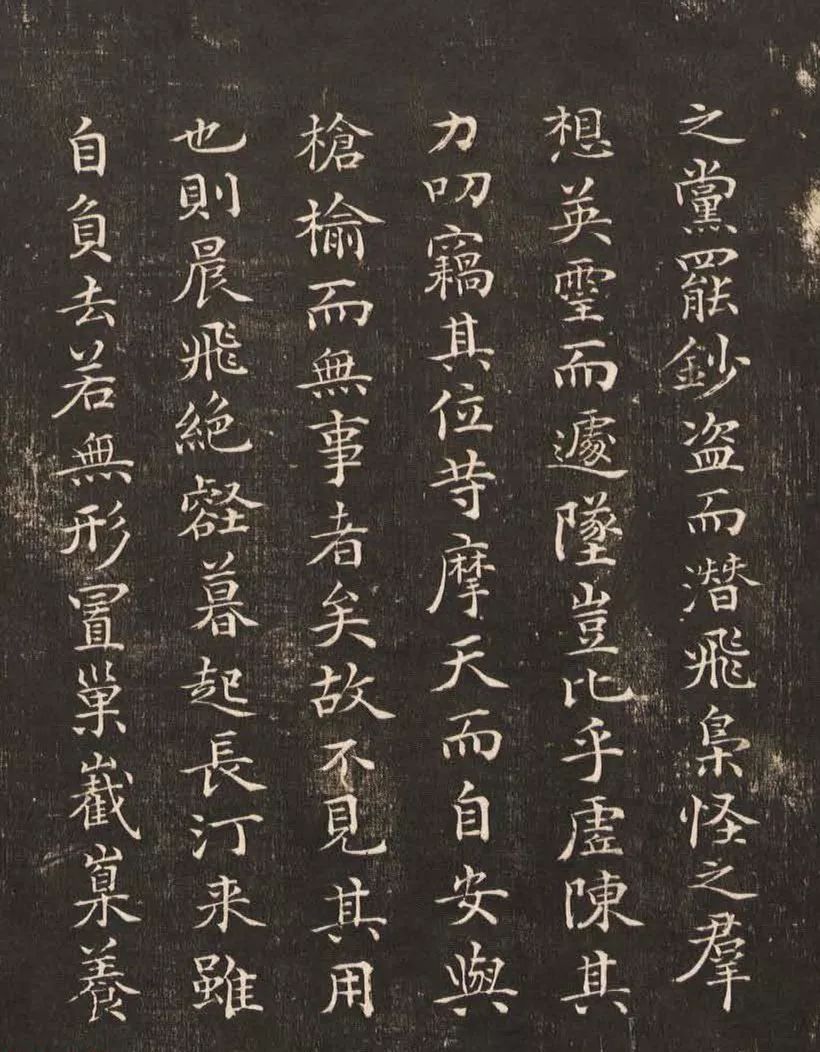 之黨罷鈔盗而潛飛梟怪之羣
想英靈而遽墜豈比乎虛陳其
力叨竊其位等摩天而自安與
槍榆而無事者矣故不見其用
也則晨飛絕壑暮起長汀来雖
自負去若無形置巢巀嵲養